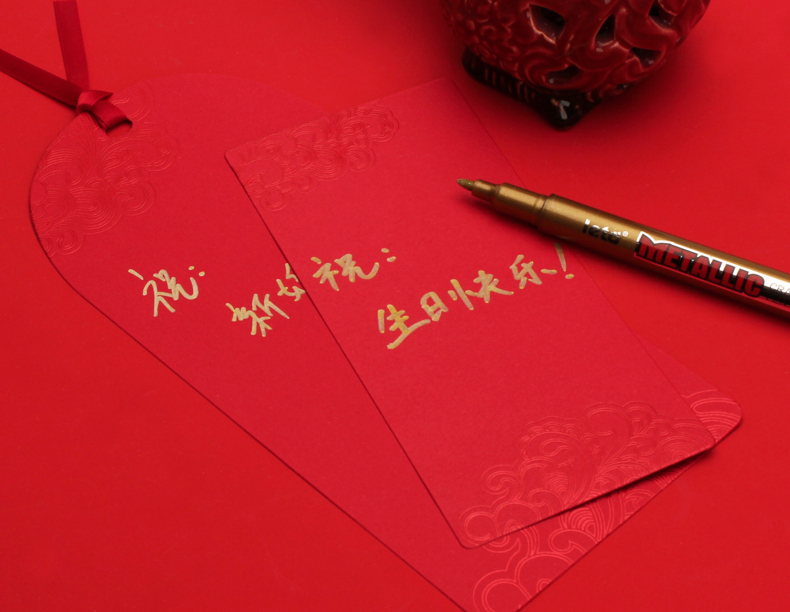 祝:
新
祝:
生日快乐!
leto
METALLIC